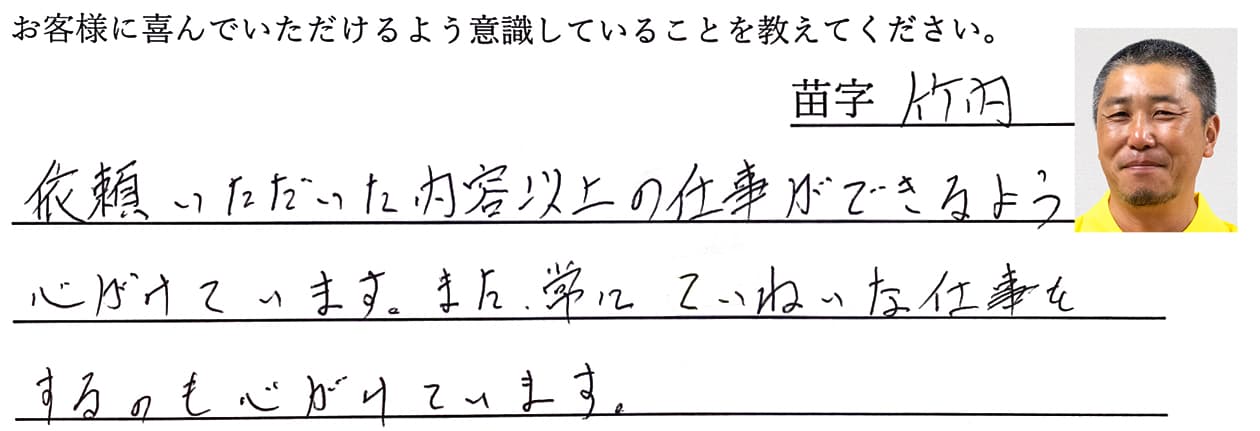 お客様に喜んでいただけるよう意識していることを教えてください。
苗字 竹内
依頼いただいた内容以上の仕事ができるよう
心がけています。また、常に ていねいな仕事を
するのも心がけています。